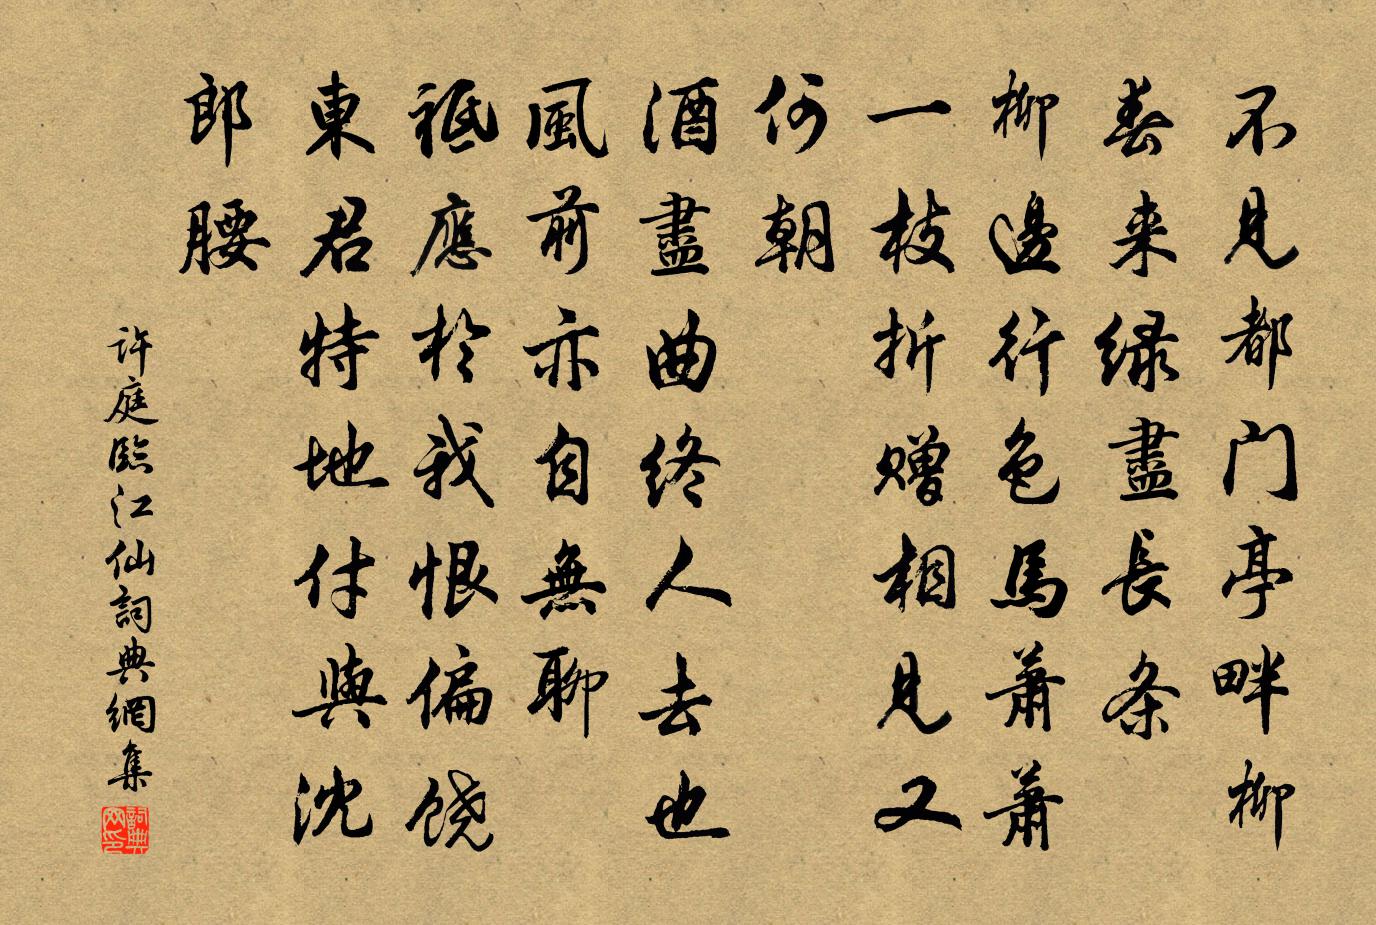 不見都门亭畔柳
春来绿盡長条
柳邊行色馬萧萧
一枝折赠相見又
何朝
酒盡曲终人去也
風前亦自無聊
祗應於我恨偏饶
東君特地付與沈
郎腰
许庭臨江仙詞典網集
詞典网印